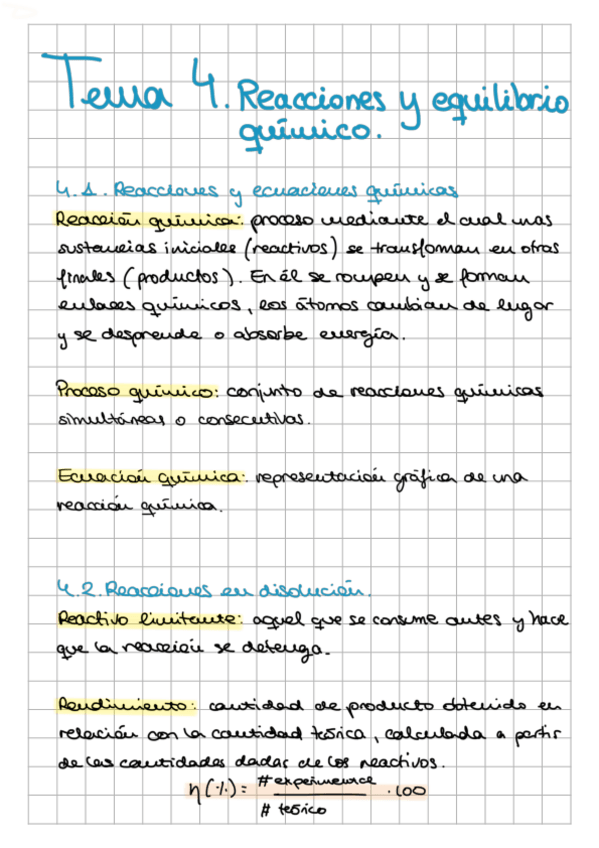 Tema 4. Reacciones y equilibrio
químico.
4.1. Reacciones y ecuaciones químicas
Reacción química: proceso mediante el cual unas
sustancias iniciales (reactivos) se transforman en otras
finales (productos). En él se rompen y se forman
enlaces químicos, los átomos cambian de lugar
y se desprende o absorbe energía.
Proceso químico: conjunto de reacciones químicas
simultáneas o consecutivas.
Ecuación química: representación gráfica de una
reacción química.
4.2. Reacciones en disolución.
Reactivo limitante: aquel que se consume antes y hace
que la reacción se detenga.
Rendimiento: cantidad de producto obtenido en
relación con la cantidad teórica, calculada a partir
de las cantidades dadas de los reactivos.
η(%) = # experimental / # teórico · 100